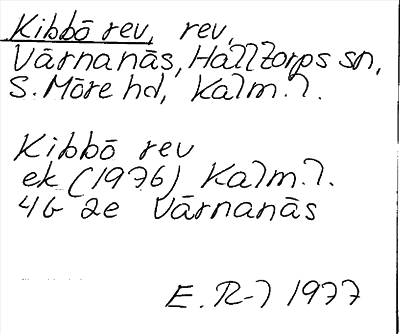 Kibbö rev, rev,
Värnanäs, Halltorps sn,
S. Möre hd, Kalm. l.
Kibbö rev
ek (1976) Kalm. l.
4G 2e Värnanäs
E. R-l 1977